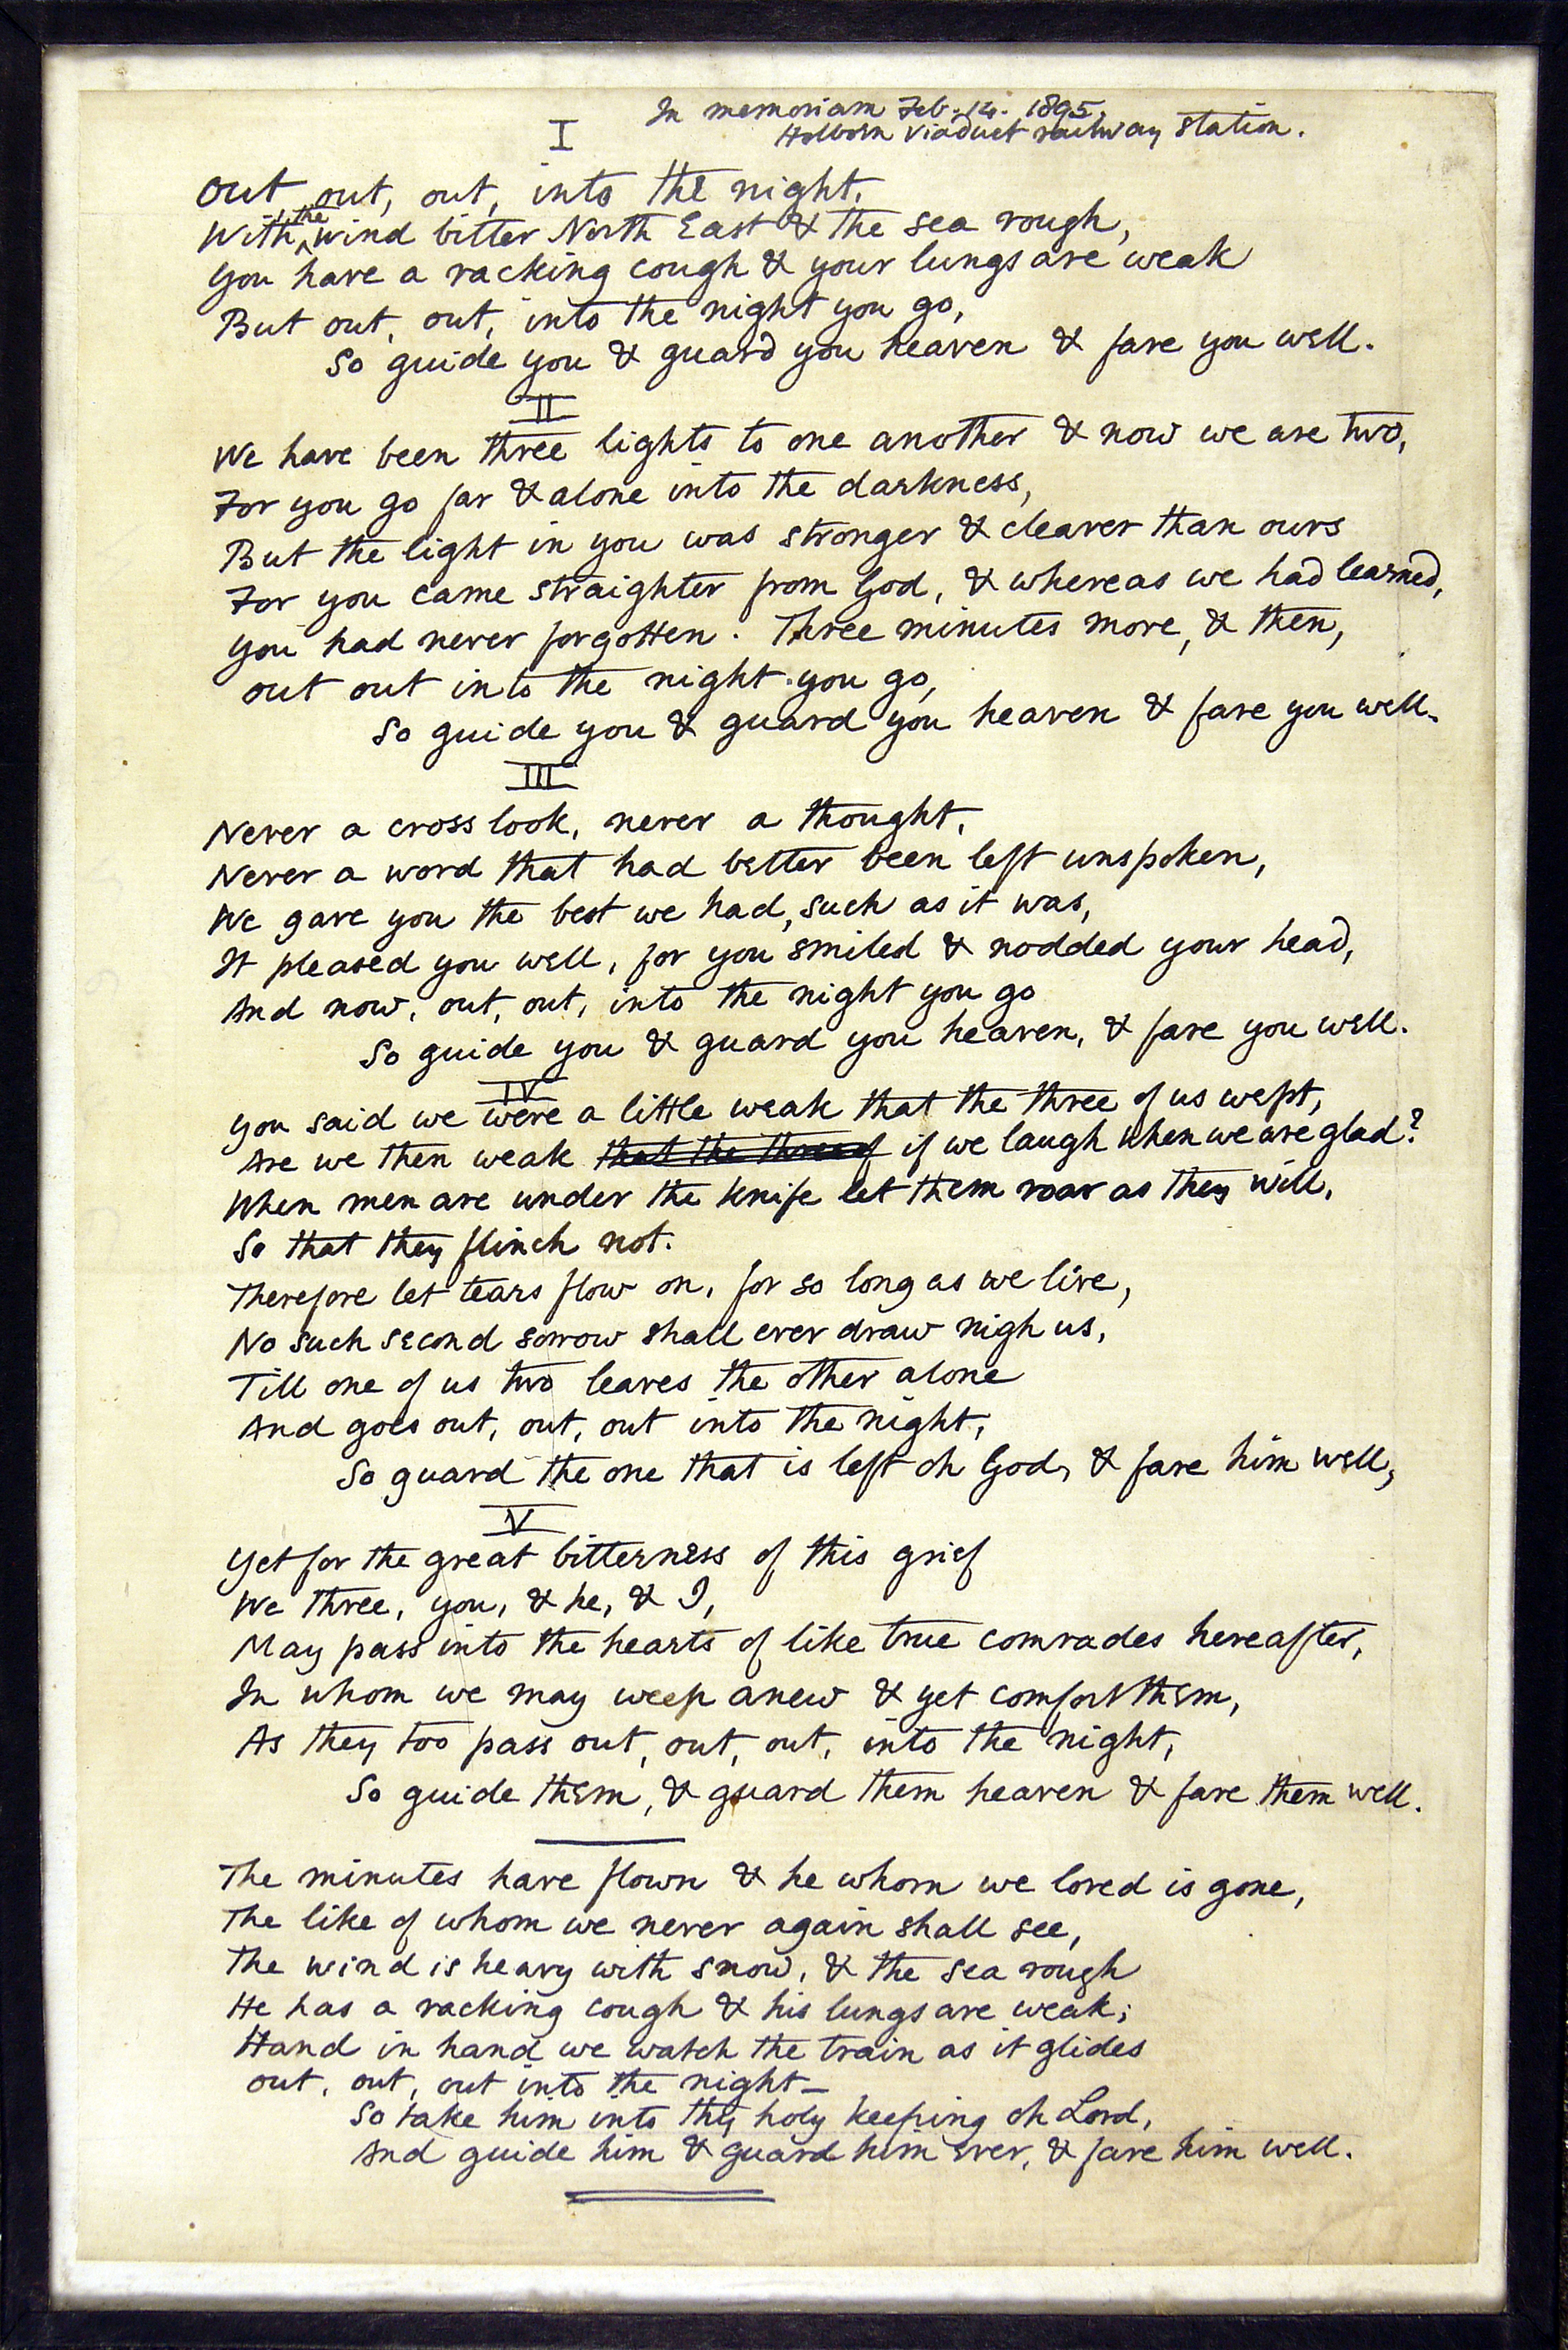 In memoriam Feb. 14. 1895.
Holborn Viaduct railway station.
I
Out, out, out, into the night,
With the wind bitter North East & the sea rough,
You have a racking cough & your lungs are weak
But out, out, into the night you go,
So guide you & guard you heaven & fare you well.
II
We have been three lights to one another & now we are two,
For you go far & alone into the darkness,
But the light in you was stronger & clearer than ours
For you came straighter from God, & whereas we had learned,
You had never forgotten. Three minutes more, & then,
Out out into the night you go,
So guide you & guard you heaven & fare you well.
III
Never a cross look, never a thought,
Never a word that had better been left unspoken,
We gave you the best we had, such as it was,
It pleased you well, for you smiled & nodded your head,
And now, out, out, into the night you go
So guide you & guard you heaven, & fare you well.
IV
You said we were a little weak that the three of us wept,
Are we then weak that the three of if we laugh when we are glad?
When men are under the knife let them roar as they will,
So that they flinch not.
Therefore let tears flow on, for so long as we live,
No such second sorrow shall ever draw nigh us,
Till one of us two leaves the other alone
And goes out, out, out into the night,
So guard the one that is left oh God, & fare him well,
V
Yet for the great bitterness of this grief
We three, you, & he, & I,
May pass into the hearts of like true comrades hereafter,
In whom we may weep anew & yet comfort them,
As they too pass out, out, out, into the night,
So guide them, & guard them heaven & fare them well.
The minutes have flown & he whom we loved is gone,
The like of whom we never again shall see,
The wind is heavy with snow, & the sea rough
He has a racking cough & his lungs are weak;
Hand in hand we watch the train as it glides
Out, out, out into the night —
So take him into thy holy keeping oh Lord,
And guide him & guard him ever, & fare him well.